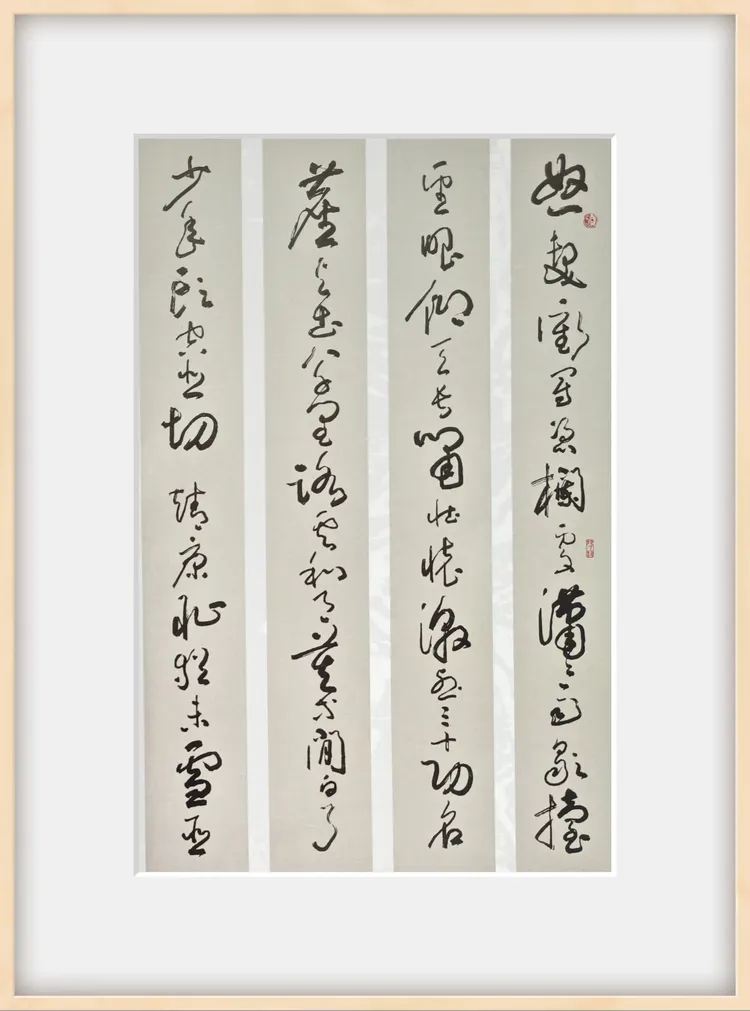 怒髮衝冠憑欄處瀟々雨歇擡
望眼仰天長嘯壯懷激烈三十功名
塵與土八千里路雲和月莫等閒白了
少年頭空悲切靖康恥猶未雪臣